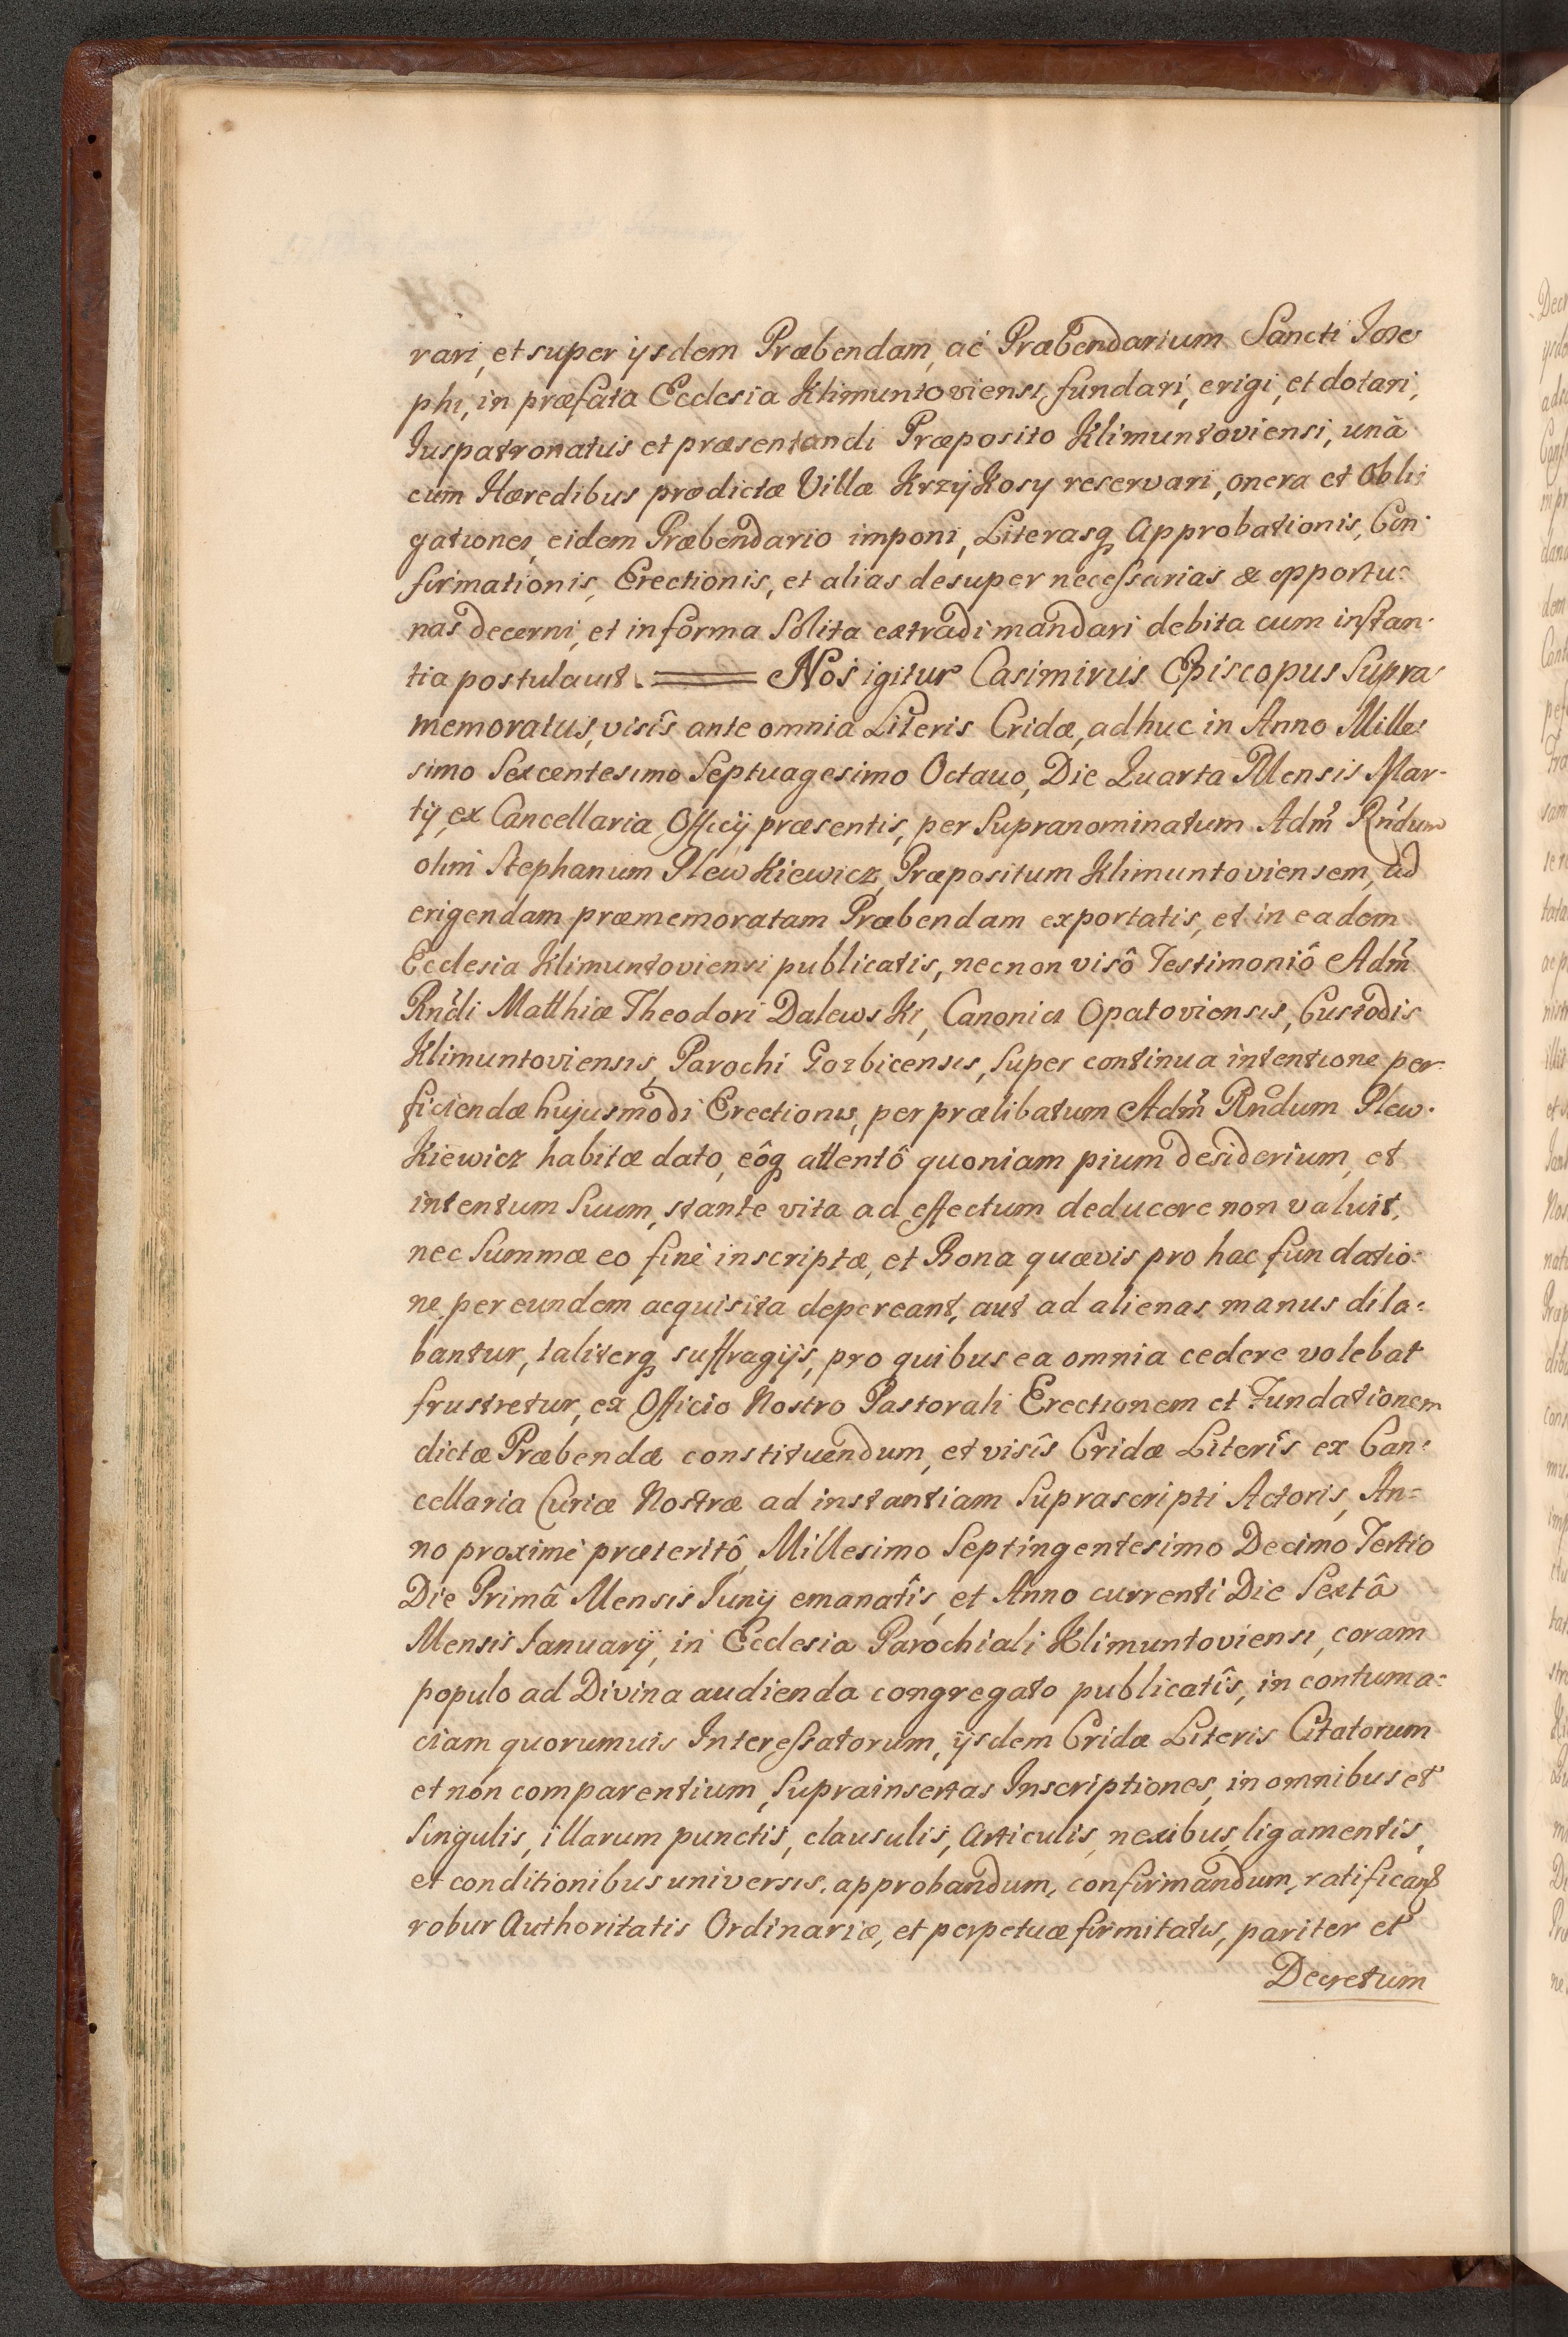 rari, et super ijsdem Præbendam, ac Præbendarium Sancti Jose
phi, in præfata Ecclesia Klimuntoviensi, fundari, erigi, et dotari,
Juspatronatus et præsentandi Præposito Klimuntoviensi, unà
cum Hæredibus prædictæ Villæ KrzyKosy reservari, onera et Obli-
gationes, eidem Præbendario imponi, Literasq Approbationis, Con-
firmationis, Erectionis, et alias desuper necessarias & opportu-
nas decerni, et in forma Solita extradi mandari debita cum instan-
tia postulavit. Nos igitur Casimirus Episcopus Supra
memoratus, visîs ante omnia Literis Cridæ, adhuc in Anno Mille-
simo Sexcentesimo Septuagesimo Octavo, Die Quarta Mensis Mar-
tij, ex Cancellaria Officij præsentis, per Supranominatum Adm Rndum
olim Stephanum PlewKiewicz, Præpositum Klimuntoviensem, ad
erigendam præmemoratam Præbendam exportatis, et in eadem
Ecclesia Klimuntoviensi publicatis, necnon visô Testimoniô Adm
Rndi Matthiæ Theodori DalewsKi, Canonici Opatoviensis, Custodis
Klimuntoviensis, Parochi Gozbicensis, Super continua intentione per-
ficiendæ hujusmodi Erectionis, per prælibatum Adm Rndum Plew-
Kiewicz habitæ dato, eôq attentô quoniam pium desiderium, et
intentum Suum, stante vita ad effectum deducere non valuit,
nec Summæ eo fine inscriptæ, et Bona quævis pro hac fundatio-
ne per eundem acquisita depereant, aut ad alienas manus dila-
bantur, taliterq suffragijs, pro quibus ea omnia cedere volebat
frustretur, ex Officio Nostro Pastorali Erectionem et Fundationem
dictæ Præbendæ constituendum, et visîs Cridæ Literîs ex Can-
cellaria Curiæ Nostræ ad instantiam Suprascripti Actoris, An=
no proximè præteritô, Millesimo Septingentesimo Decimo Tertio
Die Primâ Mensis Junij emanatîs, et Anno currenti Die Sextâ
Mensis Januarij, in Ecclesia Parochiali Klimuntoviensi, coram
populo ad Divina audienda congregato publicatîs, in contuma=
ciam quorumvis Interessatorum, ijsdem Cridæ Literis Citatorum
et non comparentium, Suprainsertas Inscriptiones, in omnibus et
Singulis, illarum punctis, clausulis, Articulis, nexibus, ligamentis,
et conditionibus universis, approbandum, confirmandum, ratificand
robur Authoritatis Ordinariæ, et perpetuæ firmitatis, pariter et
Decretum